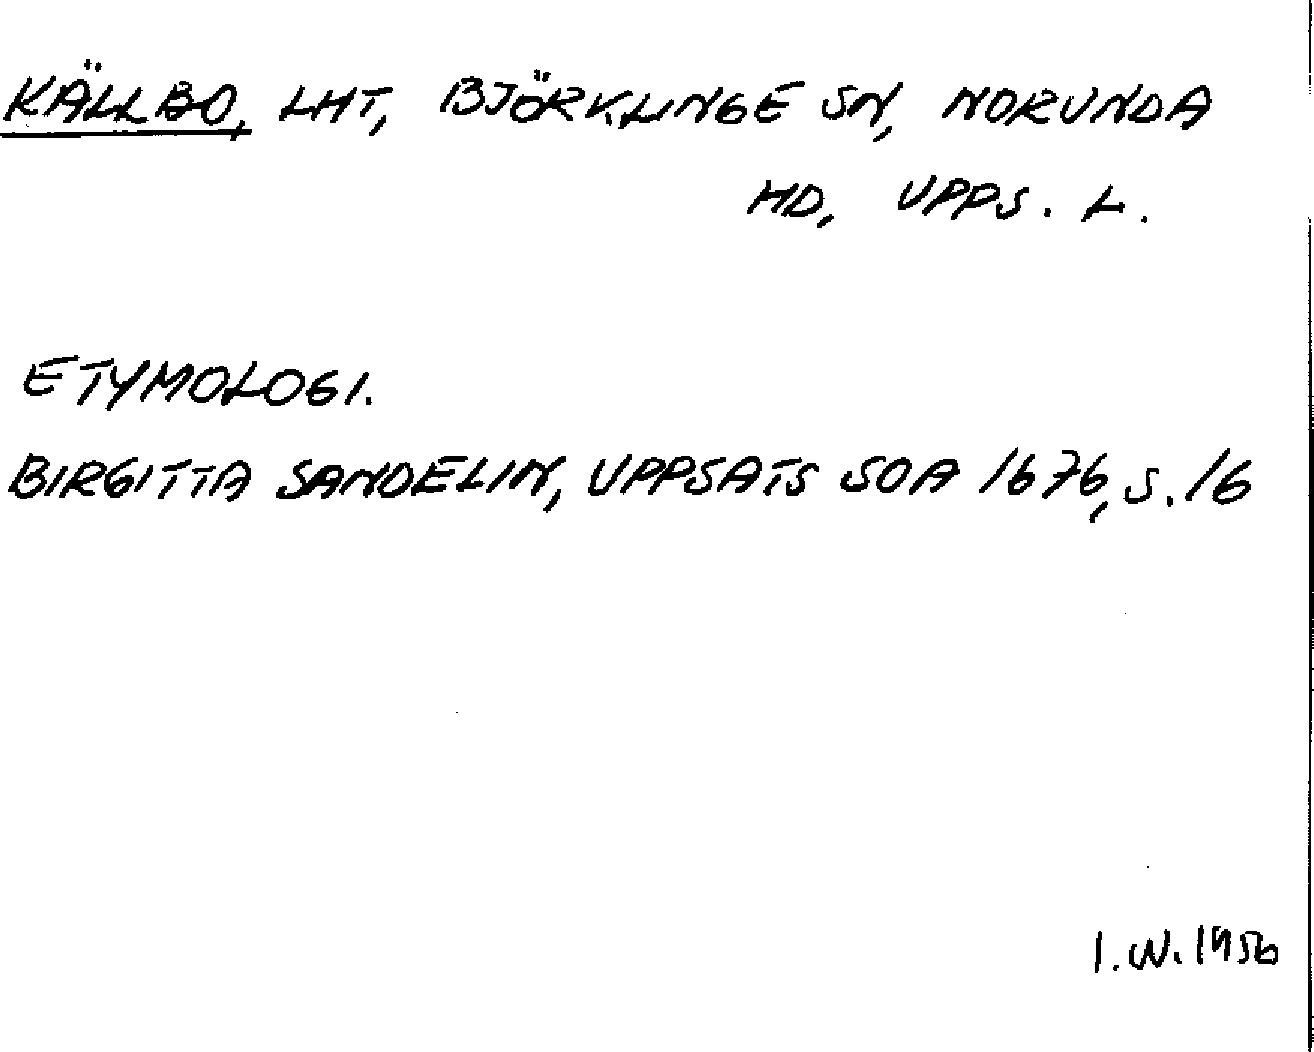 KÄLLBO, LHT, BJÖRKLINGE SN, NORUNDA
HD, UPPS. L.
ETYMOLOGI.
BIRGITTA SANDELIN, UPPSATS SOA 1676, S. 16
I.W. 1956